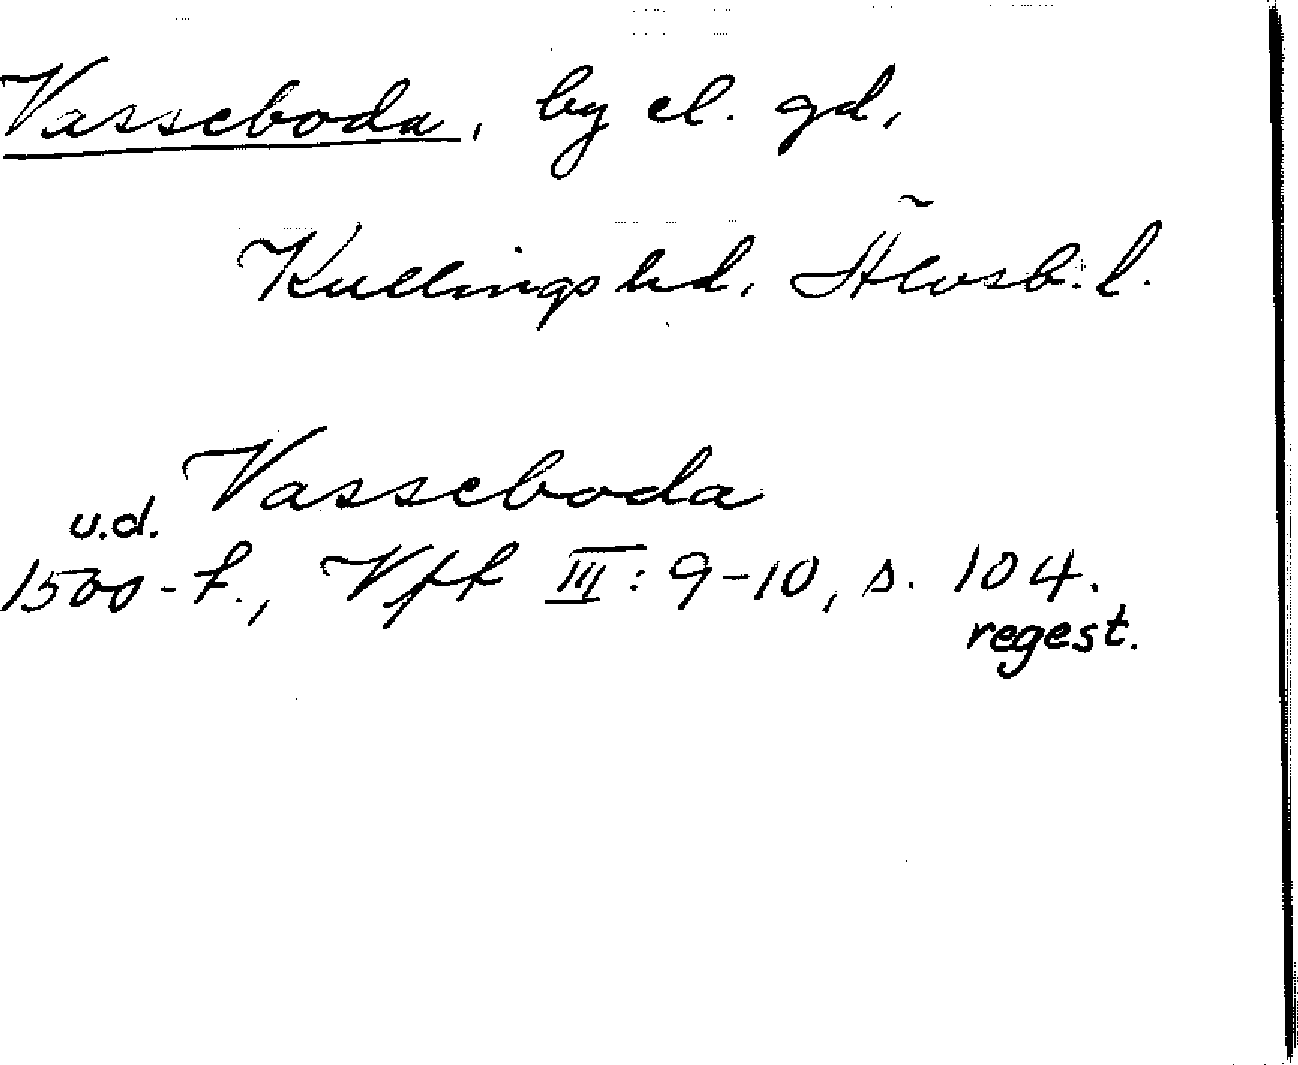 Vasseboda, by el. gd,
Kullings hd, Älvsb. l.
Vasseboda
u.d.
1500-t., Vft III: 9-10, s. 104.
regest.